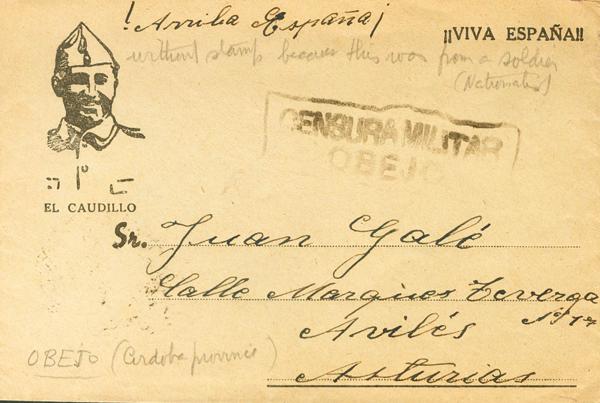 ! Arriba España ¡
¡¡VIVA ESPAÑA!!
without stamp because this was from a soldier
(Nationalist)
CENSURA MILITAR
OBEJO
EL CAUDILLO
Sr. Juan Galé
Calle Marques Teverga
Nº
Avilés
OBEJO (Cordoba province)
Asturias